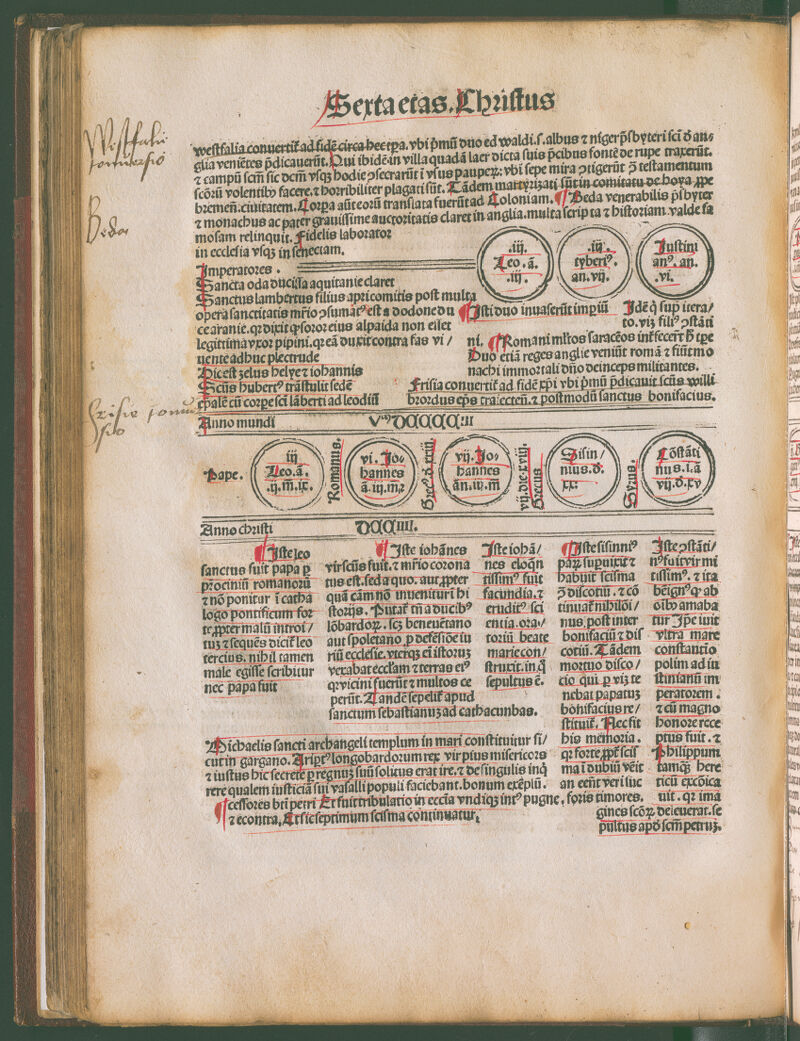 Sexta etas. Christus
westfalia conuertit᷑ ad fidē circa hec tp̄a. vbi p̄mū duo ed waldi. s. albus ⁊ niger p̄sbyteri sci̅ d̄ an⸗
glia veniētes p̄dicauerūt. Qui ibidē in villa quadā laer dicta suis p̄cibus fontē de rupe traxerūt.
⁊ campū scm̄ sic dcm̄ vsqꝫ hodie ꝯsecrarūt ī vsus pauperꝝ: vbi sepe mira ꝯtigerūt ꝫ testamentum
scōrū volentibꝰ facere. ⁊ horribiliter plagati sūt. Tādem martyrizati sūt in comitatu de hoya ꝓpe
bremen̄. ciuitatem. Corpa aūt eorū translata fuerūt ad Coloniam. ¶ Beda venerabilis p̄sbyter
⁊ monachus ac pater grauissime auctoritatis claret in anglia. multa scripta ⁊ historiam. valde fa
mosam relinquit. Fidelis laborator
in ecclesia vsqꝫ in senectam.
Westfalii
conuersio
Beda
.iij.
Leo. ā.
.iij.
.iij.
tyberiꝰ.
an. vij.
Iustini
anꝰ. an.
.vi.
Imperatores.
Sancta oda ducissa aquitanie claret
Sanctus lambertus filius apti comitis post multa
opera sanctitatis mr̄io ꝯsumatꝰ est a dodone du
ce aranie. qꝛ dixit q̄ soror eius alpaida non esset
legittima vxor pipini. qꝛ eā duxit contra fas vi/
uente adhuc plectrude
Hic est zelus helye ⁊ iohannis
Scūs hubertꝰ trāstulit sedē
ep̄alē cū corpe sci̅ lāberti ad leodiū
¶ Isti duo inuaserūt impiū
Idē q̄ sup̄ itera/
to. viꝫ filiꝰ ꝯstāti
ni. ¶ Romani ml̄tos saracēos int̄fecert̄ h̄ tpe
Duo etiā reges anglie veniūt romā ⁊ fiūt mo
nachi immortali dn̄o deinceps militantes.
Frisia conuertit᷑ ad fidē xp̄i vbi p̄mū p̄dicauit scūs willi
brordus ep̄s traiecten̄. ⁊ postmodū sanctus bonifacius.
Frisie conuer
sio
Anno mundi
Pape.
iij
Leo. ā.
.ij. m̄. ix.
Romanus.
vi. Jo⸗
hannes
ā. iij. m̄. 2
Grecꝰ. d. xxiij
vij. Jo⸗
hannes
an. iij. m̄
vij. die. xviij.
Grecus
Sisin/
nius. d̄.
xx.
Syrus.
Cōstāti
nus. i. ā
vij. d̄. xv
Anno christi
¶ Iste leo
sanctus fuit papa p
p̄rociniū romanorū
⁊ nō ponitur ī catha
logo pontificum for
te ꝓpter malū introi/
tuꝫ ⁊ sequēs dicit᷑ leo
tercius. nihil tamen
male egisse scribitur
nec papa fuit
¶ Iste iohānes
vir scūs fuit. ⁊ mr̄io corona
tus est. sed a quo. aut ꝓpter
quā cām nō inuenitur ī hi
storijs. Putat᷑ tn̄ a ducibꝰ
lōbardorꝝ. scꝫ beneuētano
aut spoletano ꝓ defēsiōe iu
riū ecclesie. vterqꝫ eī istoruꝫ
vexabat eccl̄am ⁊ terras eiꝰ
qꝛ vicini fuerūt ⁊ multos ce
perūt. Tandē sepelit᷑ apud
sanctum sebastianuꝫ ad cathacunbas.
Iste iohā/
nes eloqn̄
tissimꝰ fuit
facundia. ⁊
eruditꝰ sci
entia. ora/
toriū beate
marie con/
struxit. in q̄
sepultus ē.
¶ Iste sisinniꝰ
parꝝ supuixit ⁊
habuit scisma
ꝫ discotiū. ⁊ cō
tinuat᷑ nihilōi/
nus. post inter
bonifaciū ⁊ dis
cotiū. Tādem
mortuo disco/
cio qui ꝑ viꝫ te
nebat papatuꝫ
bonifacius re/
stituit᷑. Nec fit
his memoria.
qꝛ forte ꝓpt̄ scis
ma ī dubiū vēit
an eēnt veri suc
Iste ꝯstāti/
nꝰ fuit vir mi
tissimꝰ. ⁊ ita
beīgnꝰ qꝫ ab
oībꝰ amaba
tur Ipe iuit
vltra mare
constantio
polim ad iu
stinianū im
peratorem.
⁊ cū magno
honore rece
ptus fuit. ⁊
Philippum
tamqꝫ here
ticū excōica
uit. qꝛ ima
gines scōꝝ deleuerat. se
pultus apd̄ scm̄ petruꝫ.
Michaelis sancti archangeli templum in mari constituitur si/
cut in gargano. Aript̄ꝰ longobardorum rex vir pius misericors
⁊ iustus hic secrete ꝑ regnuꝫ suū solicus erat ire. ⁊ de singulis inq̄
rere qualem iusticiā sui vasalli populi faciebant. bonum exēplū.
¶ cessores bt̄i petri Et fuit tribulatio in eccīa vndiqꝫ intꝰ pugne, foris timores.
⁊ econtra, Et sic septimum scisma continuatur.